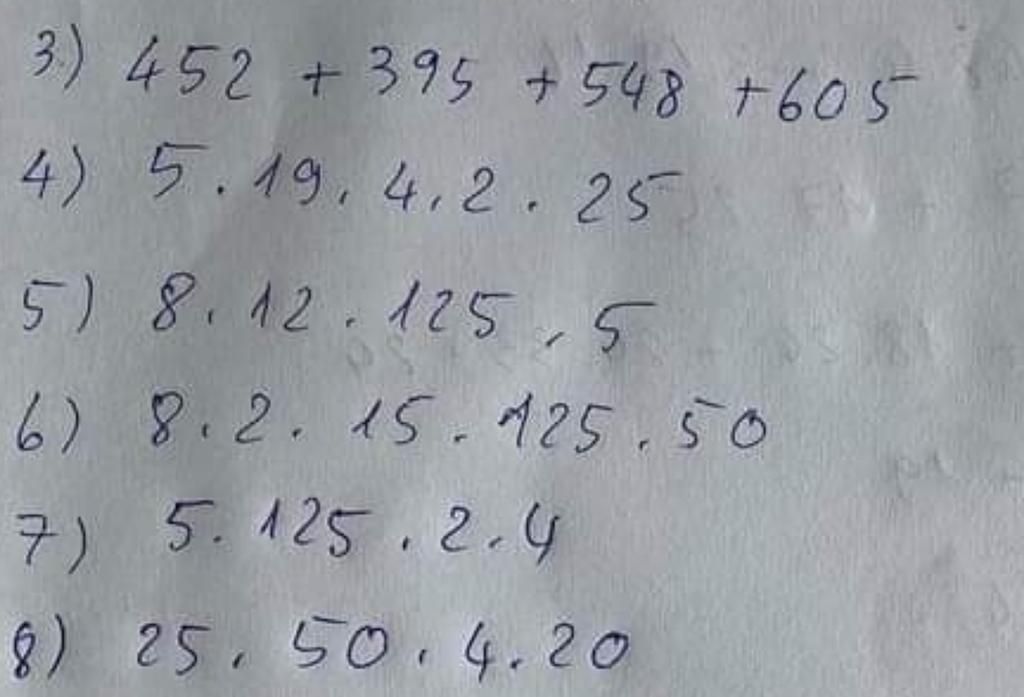 3.) 452 + 395 + 548 + 605
4) 5 . 19 . 4 . 2 . 25
5) 8 . 12 . 125 . 5
6) 8 . 2 . 15 . 125 . 50
7) 5 . 125 . 2 . 4
8) 25 . 50 . 4 . 20